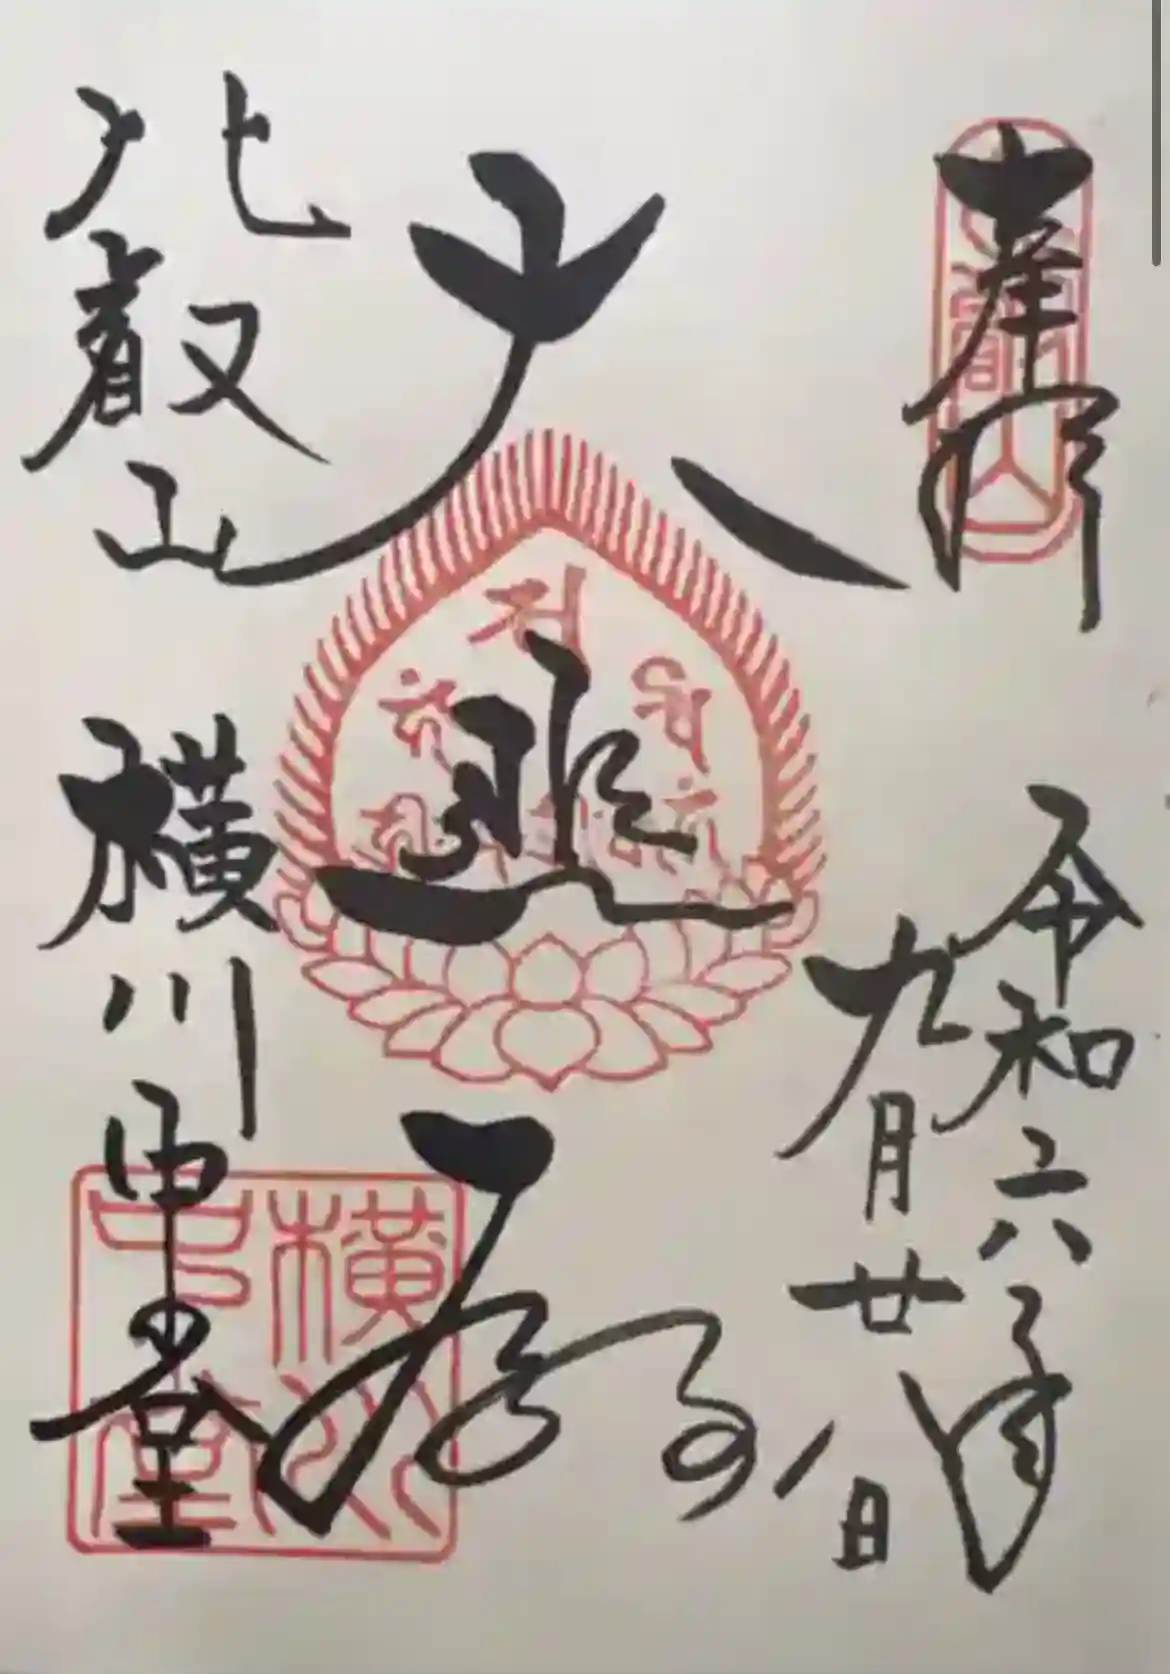 奉拝
比叡山
令和六年
九月廿八日
大悲殿
比叡山
横川中堂
横川
中堂